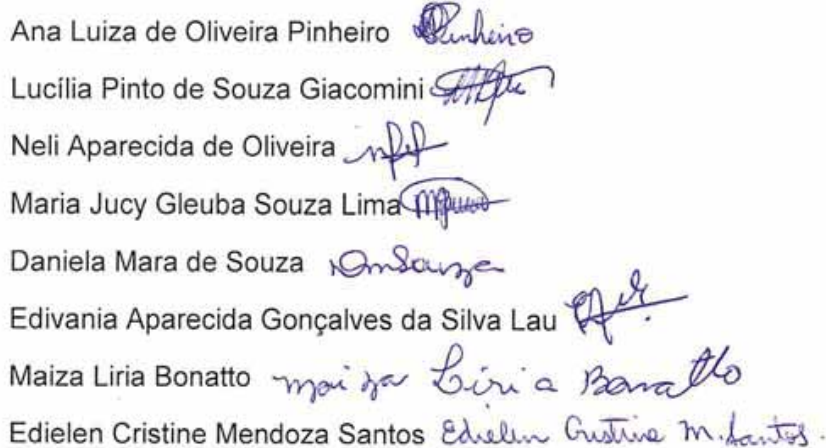 Ana Luiza de Oliveira Pinheiro Pinheiro
Lucília Pinto de Souza Giacomini
Neli Aparecida de Oliveira
Maria Jucy Gleuba Souza Lima
Daniela Mara de Souza DmSouza
Edivania Aparecida Gonçalves da Silva Lau
Maiza Liria Bonatto Maiza Liria Bonatto
Edielen Cristine Mendoza Santos Edielen Cristine M. Santos.